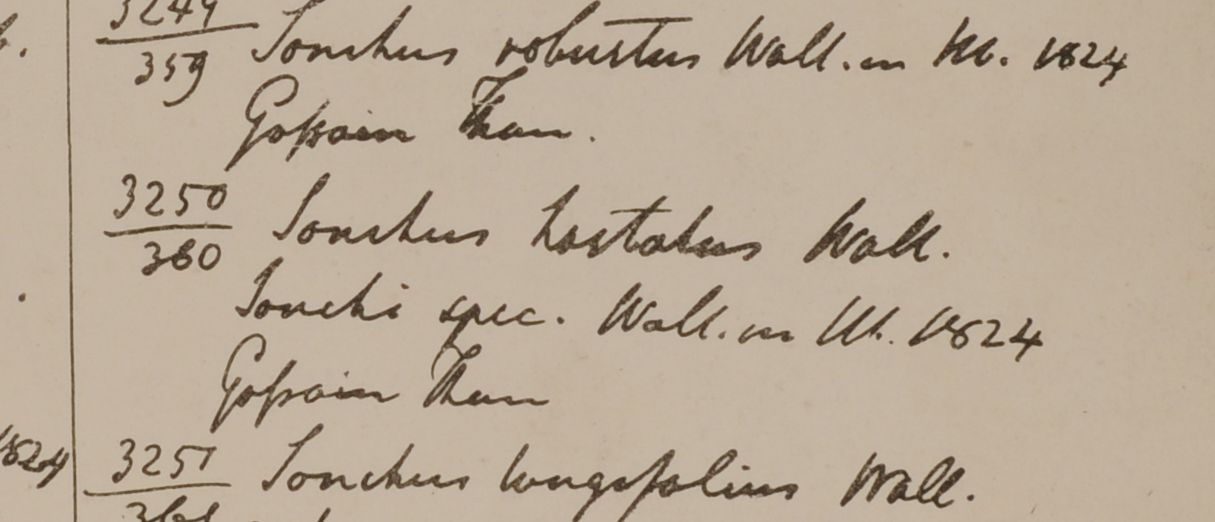 b.
3249
359 Sonchus robustus Wall. in litt. 1824
Gossain Than.
3250
360 Sonchus hastatus Wall.
Sonchi spec. Wall. in litt. 1824
Gossain Than
1824
3251
361 Sonchus longifolius Wall.